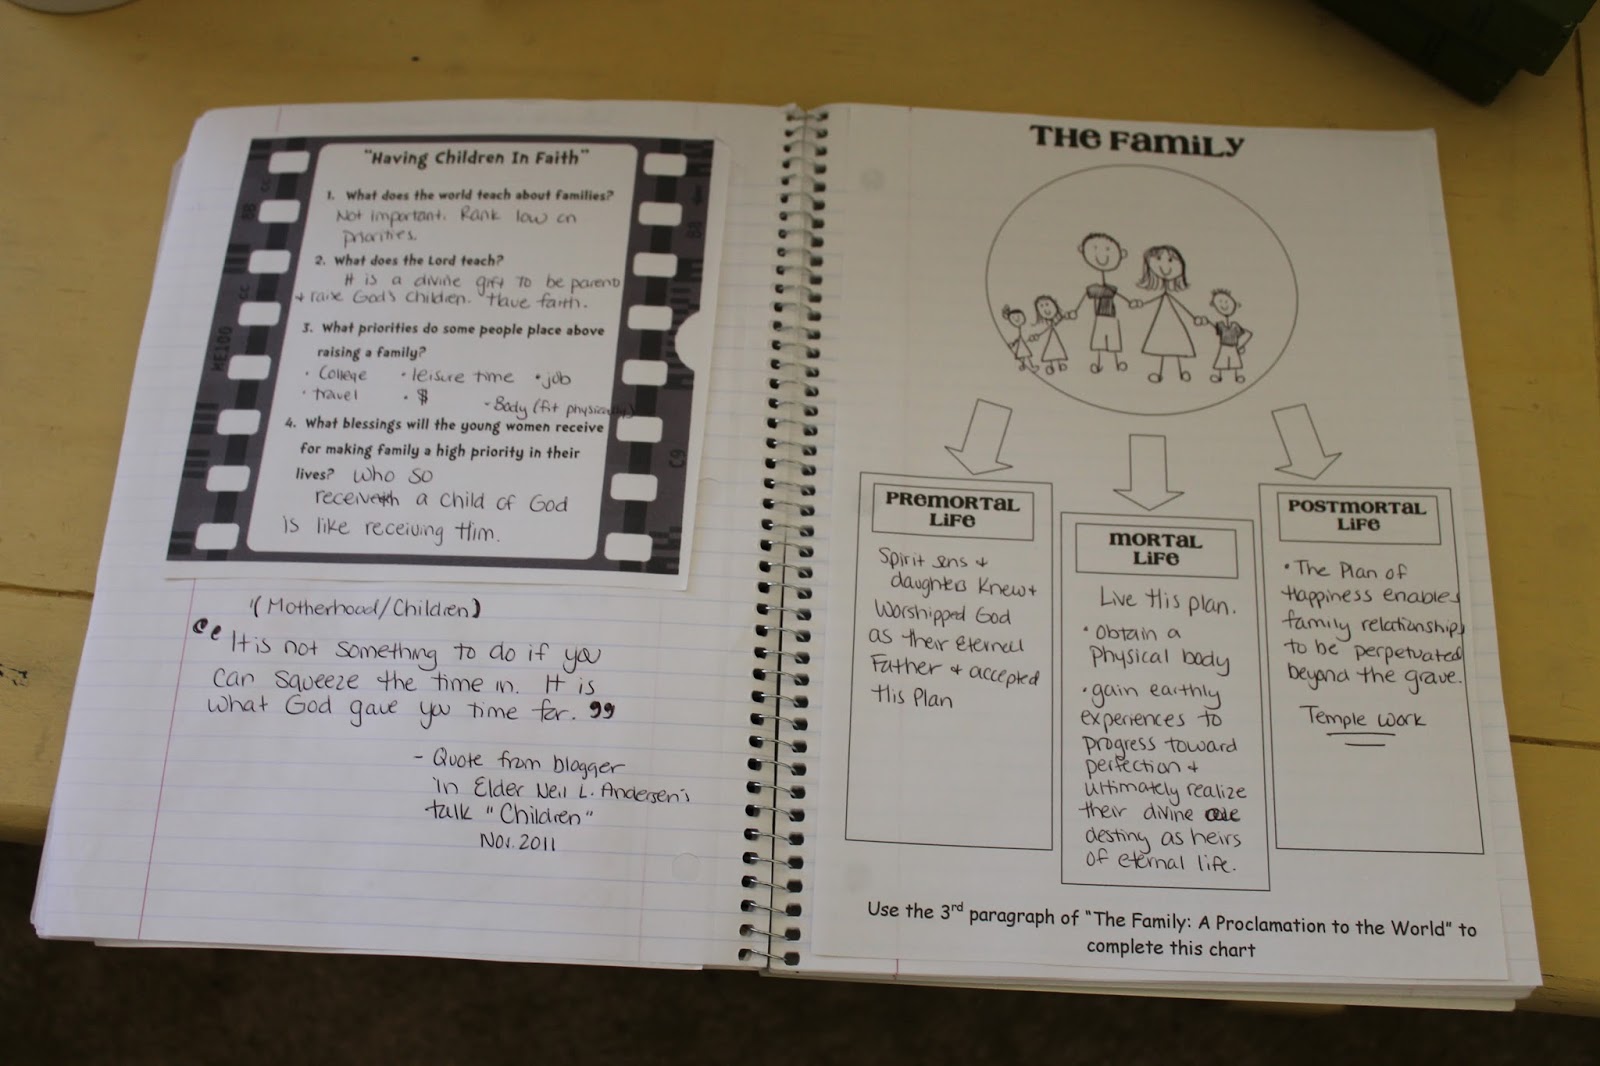 "Having Children In Faith"
1. What does the world teach about families?
Not important. Rank low on
priorities.
2. What does the Lord teach?
It is a divine gift to be parents
+ raise God's children. Have faith.
3. What priorities do some people place above
raising a family?
· College · leisure time · job
· travel · $ - Body (fit physically)
4. What blessings will the young women receive
for making family a high priority in their
lives? Who so
receiveth a child of God
is like receiving Him.
(Motherhood/Children)
"It is not something to do if you
can squeeze the time in. It is
what God gave you time for."
- Quote from blogger
in Elder Neil L. Andersen's
talk "Children"
Nov. 2011
THE FAMILY
PREMORTAL
LIFE
Spirit sons +
daughters knew +
worshipped God
as their eternal
Father + accepted
His Plan
MORTAL
LIFE
Live His plan.
· Obtain a
physical body
· gain earthly
experiences to
progress toward
perfection +
ultimately realize
their divine
destiny as heirs
of eternal life.
POSTMORTAL
LIFE
· The Plan of
Happiness enables
family relationships
to be perpetuated
beyond the grave.
Temple work
Use the 3rd paragraph of "The Family: A Proclamation to the World" to
complete this chart